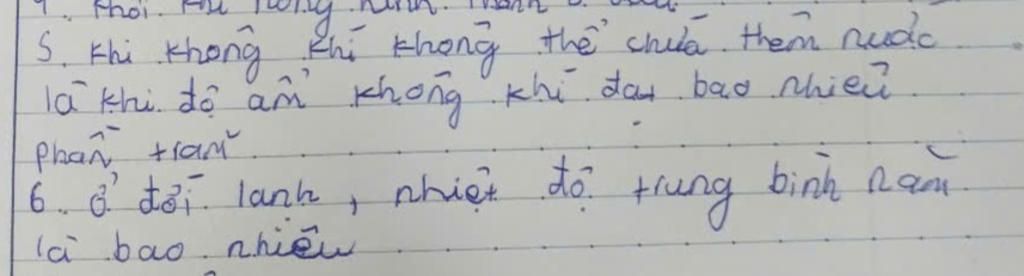 5. Khi không khí không thể chứa thêm nước
là khi độ ẩm không khí đạt bao nhiêu
phần trăm
6. ở đới lạnh, nhiệt độ trung bình năm
là bao nhiêu